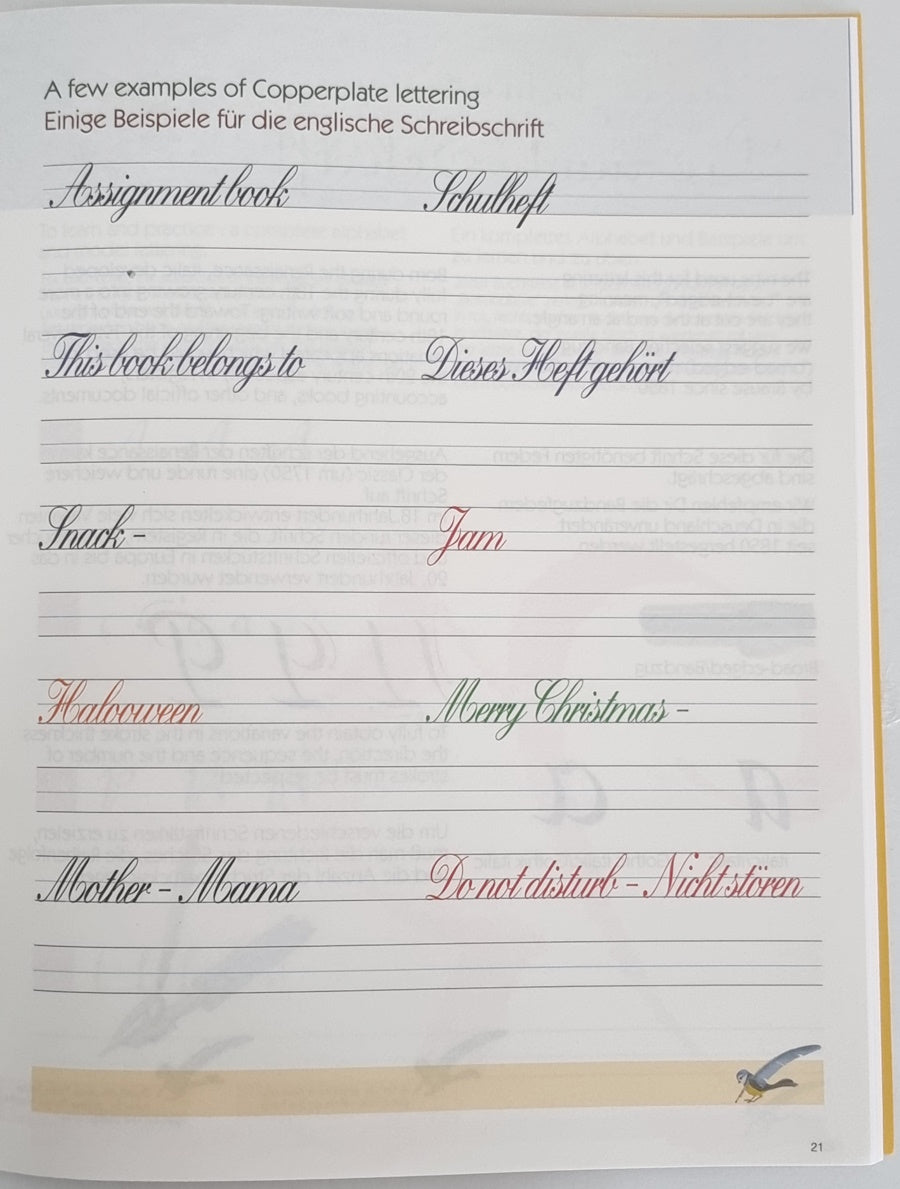 A few examples of Copperplate lettering
Einige Beispiele für die englische Schreibschrift
Assignment book Schulheft
This book belongs to Dieses Heft gehört
Snack - Jam
Halooween Merry Christmas -
Mother - Mama Do not disturb - Nicht stören
21